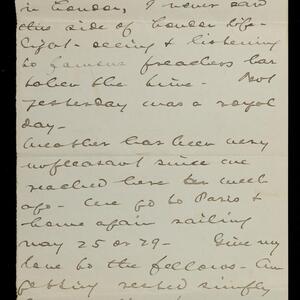 in London, I never saw
this side of London life -
Sight-seeing & listening
to famous preachers has
taken the time. But
yesterday was a royal
day -
Weather has been very
unpleasant since we
reached here ten week
ago - We go to Paris &
home again sailing
May 25 or 29 - Give my
love to the fellows - Am
getting rested simply